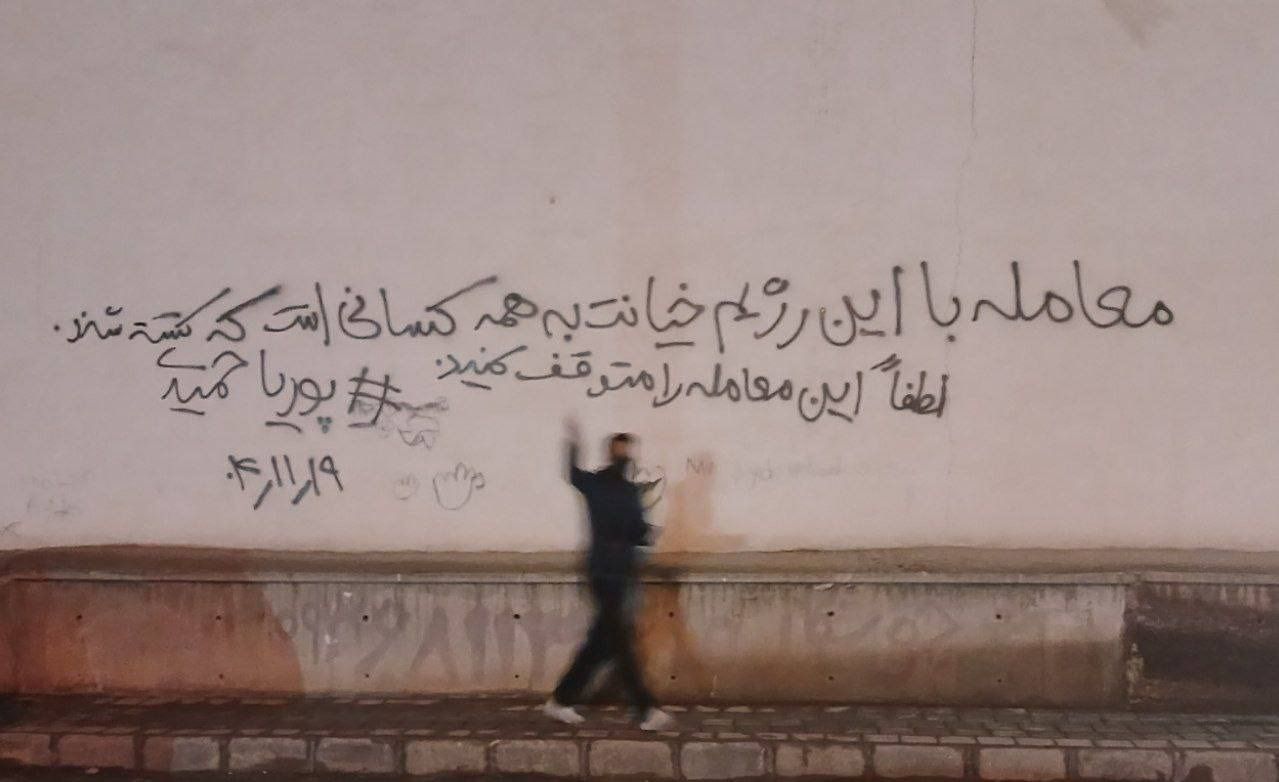 معامله با این رژیم خیانت به همه کسانی است که کشته شدند.
لطفاً این معامله را متوقف کنید.
#پوریا حمیدی
۰۴/۱۱/۱۹